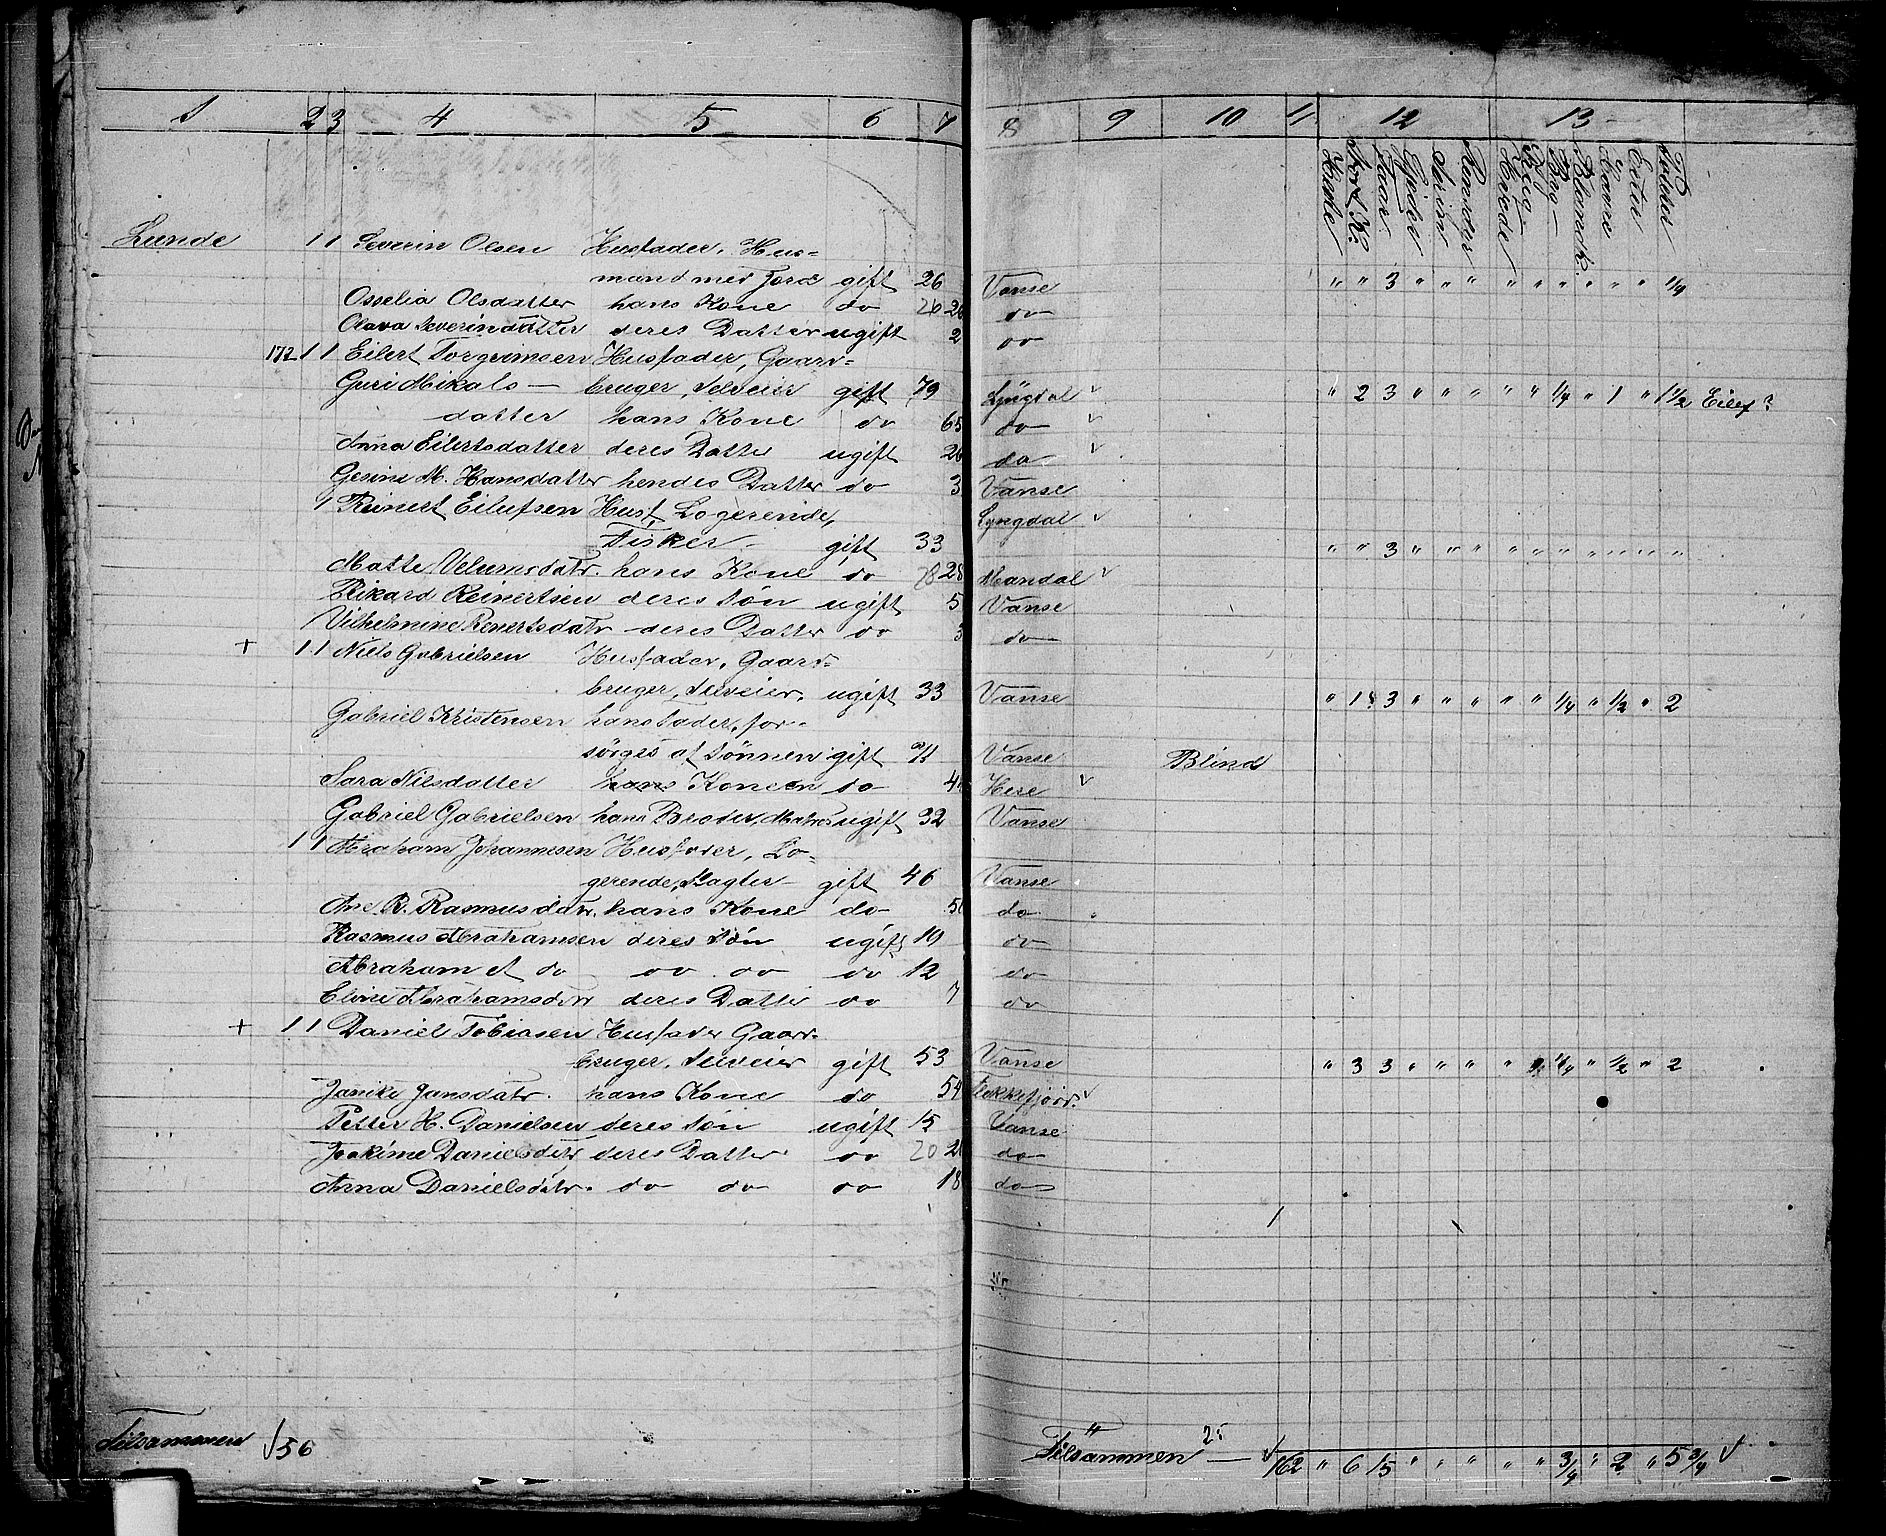 1 2 3 4 5 6 7 8 9 10 11 12 13
Heste Stort K. Faar Gjeder Sviin Rensdyr Hvede Rug Byg Blandk. Havre Erter Potetes
Lunde 1 1 Severin Olsen Husfader, Hus=
mand med Jord gift 26 Vanse " " 3 " " " " " " " " " 1/4
Osselia Olsdatter hans Kone do 26 26 do
Olava Severindatter deres Datter ugift 2 do
172 1 1 Eilert Torgrimsen Husfader, Gaard=
Guri Mikals— bruger, Selveier gift 79 Lyngdal v " 2 3 " " " " " 1/4 " 1 " 1 1/2 Eilef?
datter hans Kone do 65 do v
Anna Eilertsdatter deres Datter ugift 26 do v
Gesine M. Hansdatter hendes Datter do 3 Vanse
1 Reinert Eilufsen Husf. Logerende, Lyngdal v
Fisker gift 33 " " 3 " " " " " " " " " "
Matte Velumsdatr. hans Kone do 28 28 Mandal v
Rikard Reinertsen deres Søn ugift 5 Vanse
Vilhelmine Renertsdatr deres Datter do 3 do
+ 1 1 Niels Gabrielsen Husfader, Gaard=
bruger, Selveier, ugift 33 Vanse " 1 3 " " " " " 1/4 " 1/2 " 2
Gabriel Kristensen hans Fader, for=
sörges af Sønnen gift 71 Vanse Blind
Sara Nilsdatter hans Konen do Hese v
Gabriel Gabrielsen hans Broder, Matros ugift 32 Vanse
1 1 Abraham Johannesen Husfader, Lo=
gerende, Slagter gift 46 Vanse
Ane R. Rasmusdatr. hans Kone do do
Rasmus Abrahamsen deres Søn ugift 19 do
Abraham A do do do do 12 do
Eline Abrahamsdatr deres Datter do 7 do
+ 1 1 Daniel Tobiasen Husfader Gaard=
bruger, Selveier gift 53 Vanse " 3 3 " " " " 1/4 " 1/2 " 2
Janike Jansdatr. hans Kone do 54 Flekkefjord. v
Petter H. Danielsen deres Søn ugift 15 Vanse
Joakime Danielsdatr deres Datter do 20 do
Anna Danielsdatr. do do do 18 do
Tilsammen √ 56 Tilsammen 25 — √ 162 " 6 15 " " " " " 3/4 " 2 " 5 3/4 √